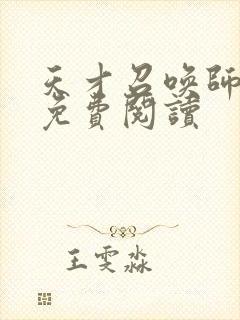 天才召喚師
免費閱讀
王雯淼